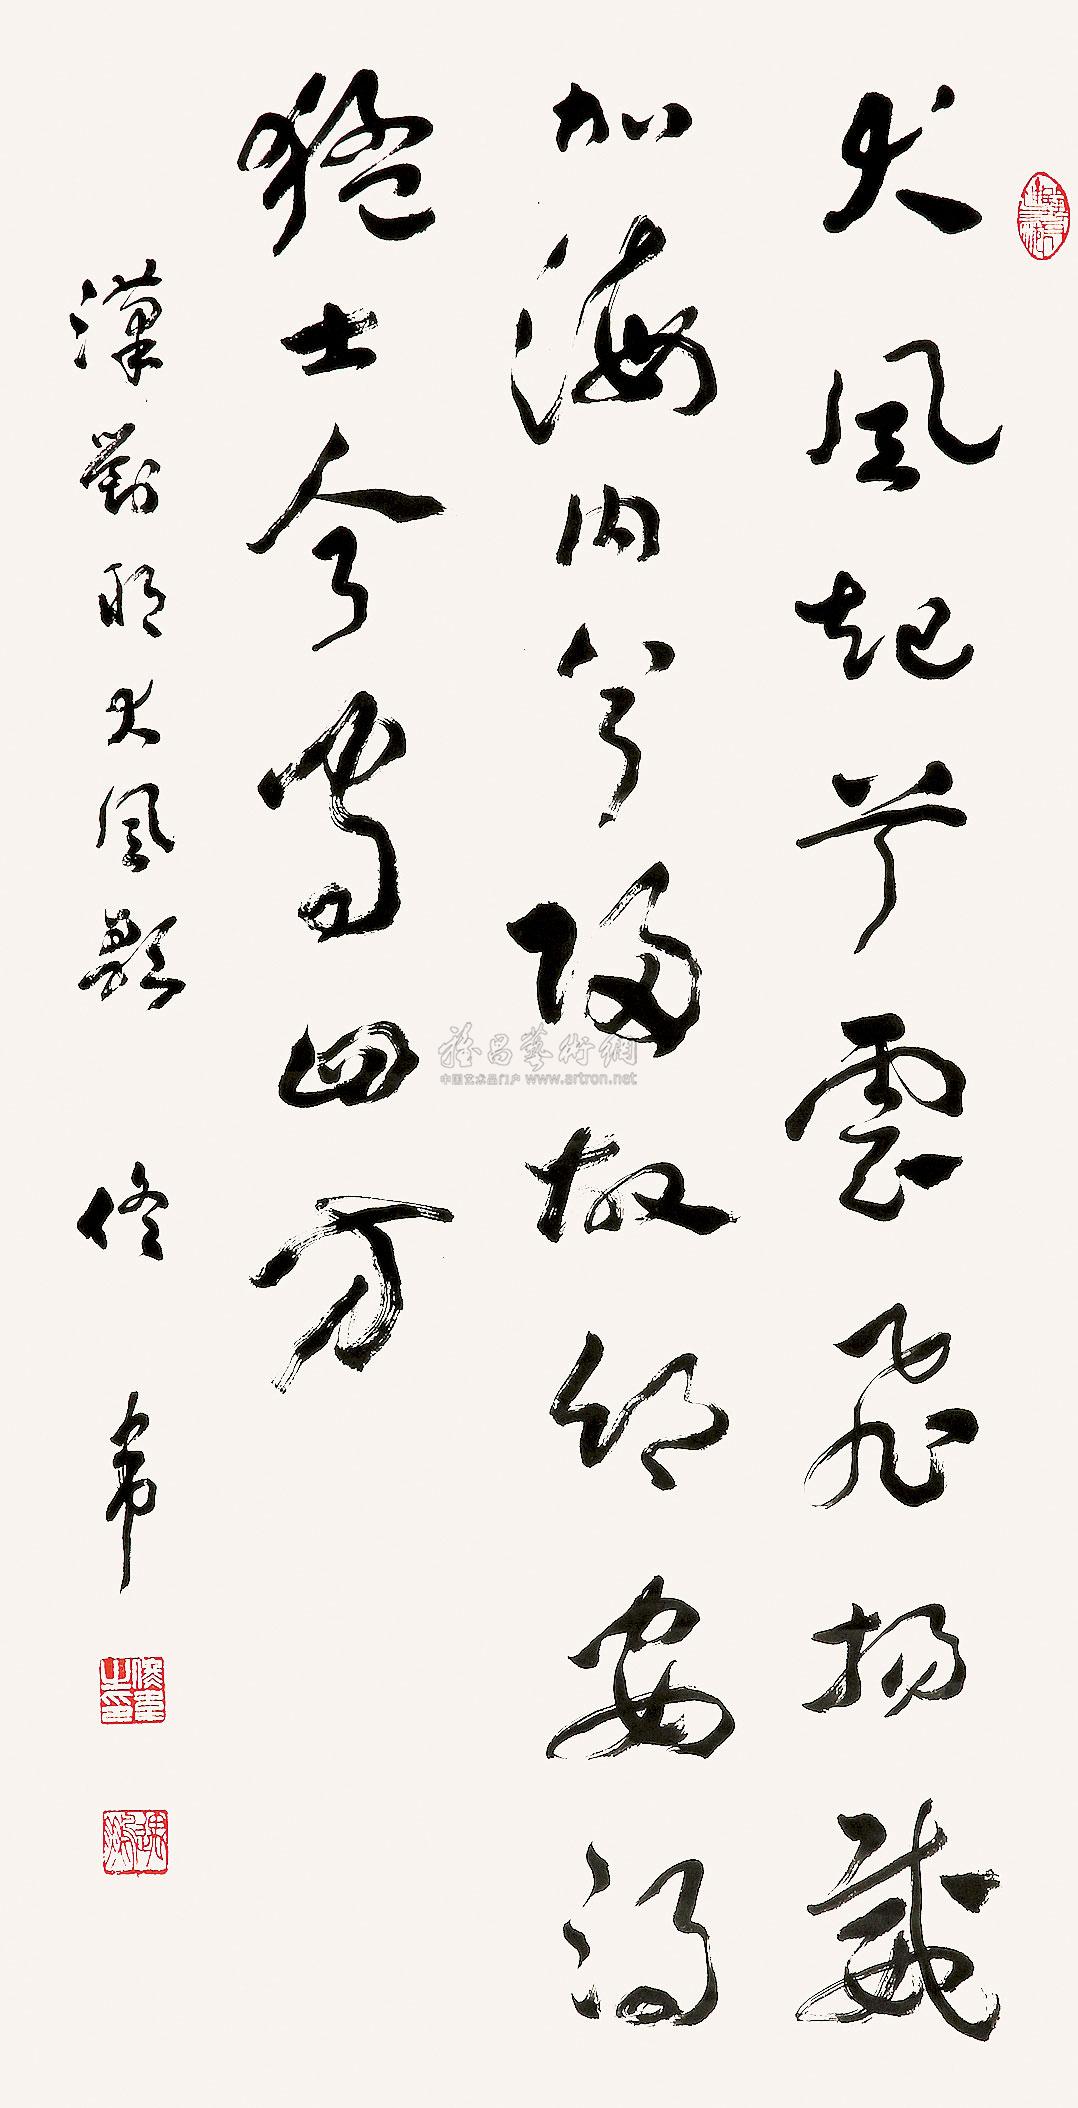 大風起兮雲飛揚威
加海内兮歸故鄉安得
猛士兮守四方
漢劉邦大風歌 佟韋
佟韋之印
雅昌藝術網
中国艺术品门户 www.artron.net